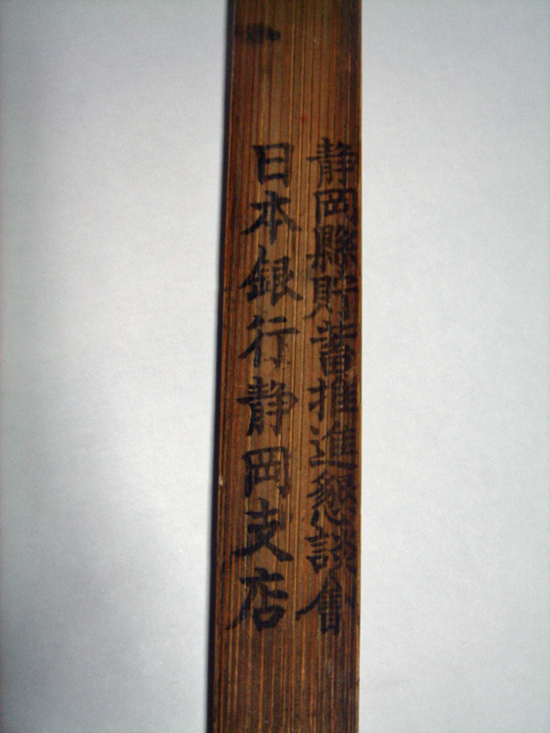 静岡縣貯蓄推進懇談會
日本銀行静岡支店